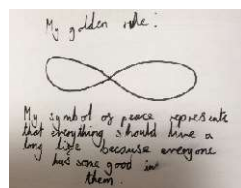 My golden rule:
My symbol of peace represents
that everything should have a
long life because everyone
has some good in
them.